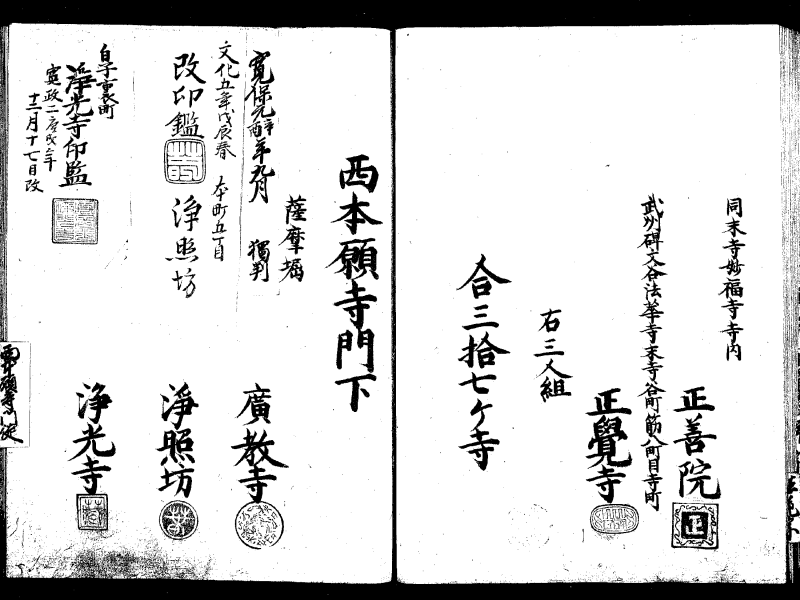 同末寺妙福寺寺内
正善院
武州碑文谷法華寺末寺谷町筋八町目寺町
正覺寺
右三人組
合三拾七ケ寺
西本願寺門下
薩摩堀
廣教寺
寛保元辛酉年九月
獨判
文化五年戊辰春
本町五丁目
改印鑑
淨照坊
淨照坊
白子裏町
淨光寺印鑑
寛政二庚戌年
十二月十七日改
淨光寺
西本願寺門徒